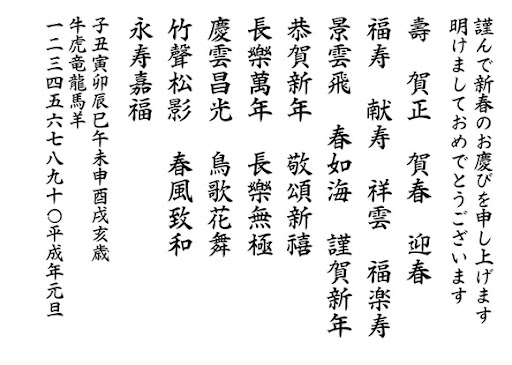 謹んで新春のお慶びを申し上げます
明けましておめでとうございます
壽 賀正 賀春 迎春
福寿 献寿 祥雲 福楽寿
景雲飛 春如海 謹賀新年
恭賀新年 敬頌新禧
長樂萬年 長樂無極
慶雲昌光 鳥歌花舞
竹聲松影 春風致和
永寿嘉福
子丑寅卯辰巳午未申酉戌亥歳
牛虎竜龍馬羊
一二三四五六七八九十〇平成年元旦